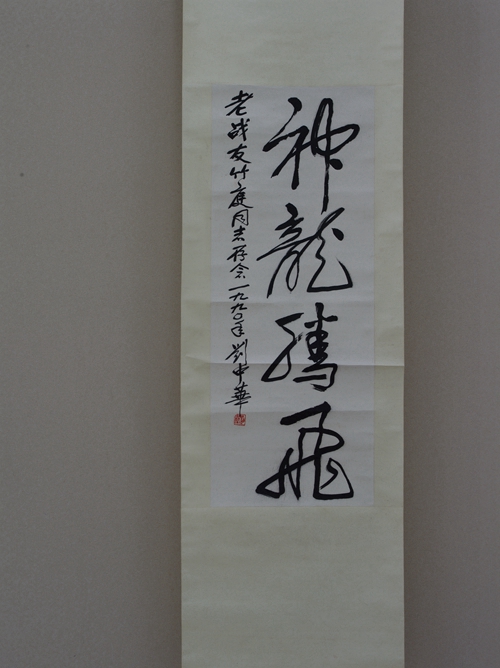 神龍騰飛
老战友竹庭同志存念一九九〇年劉中華